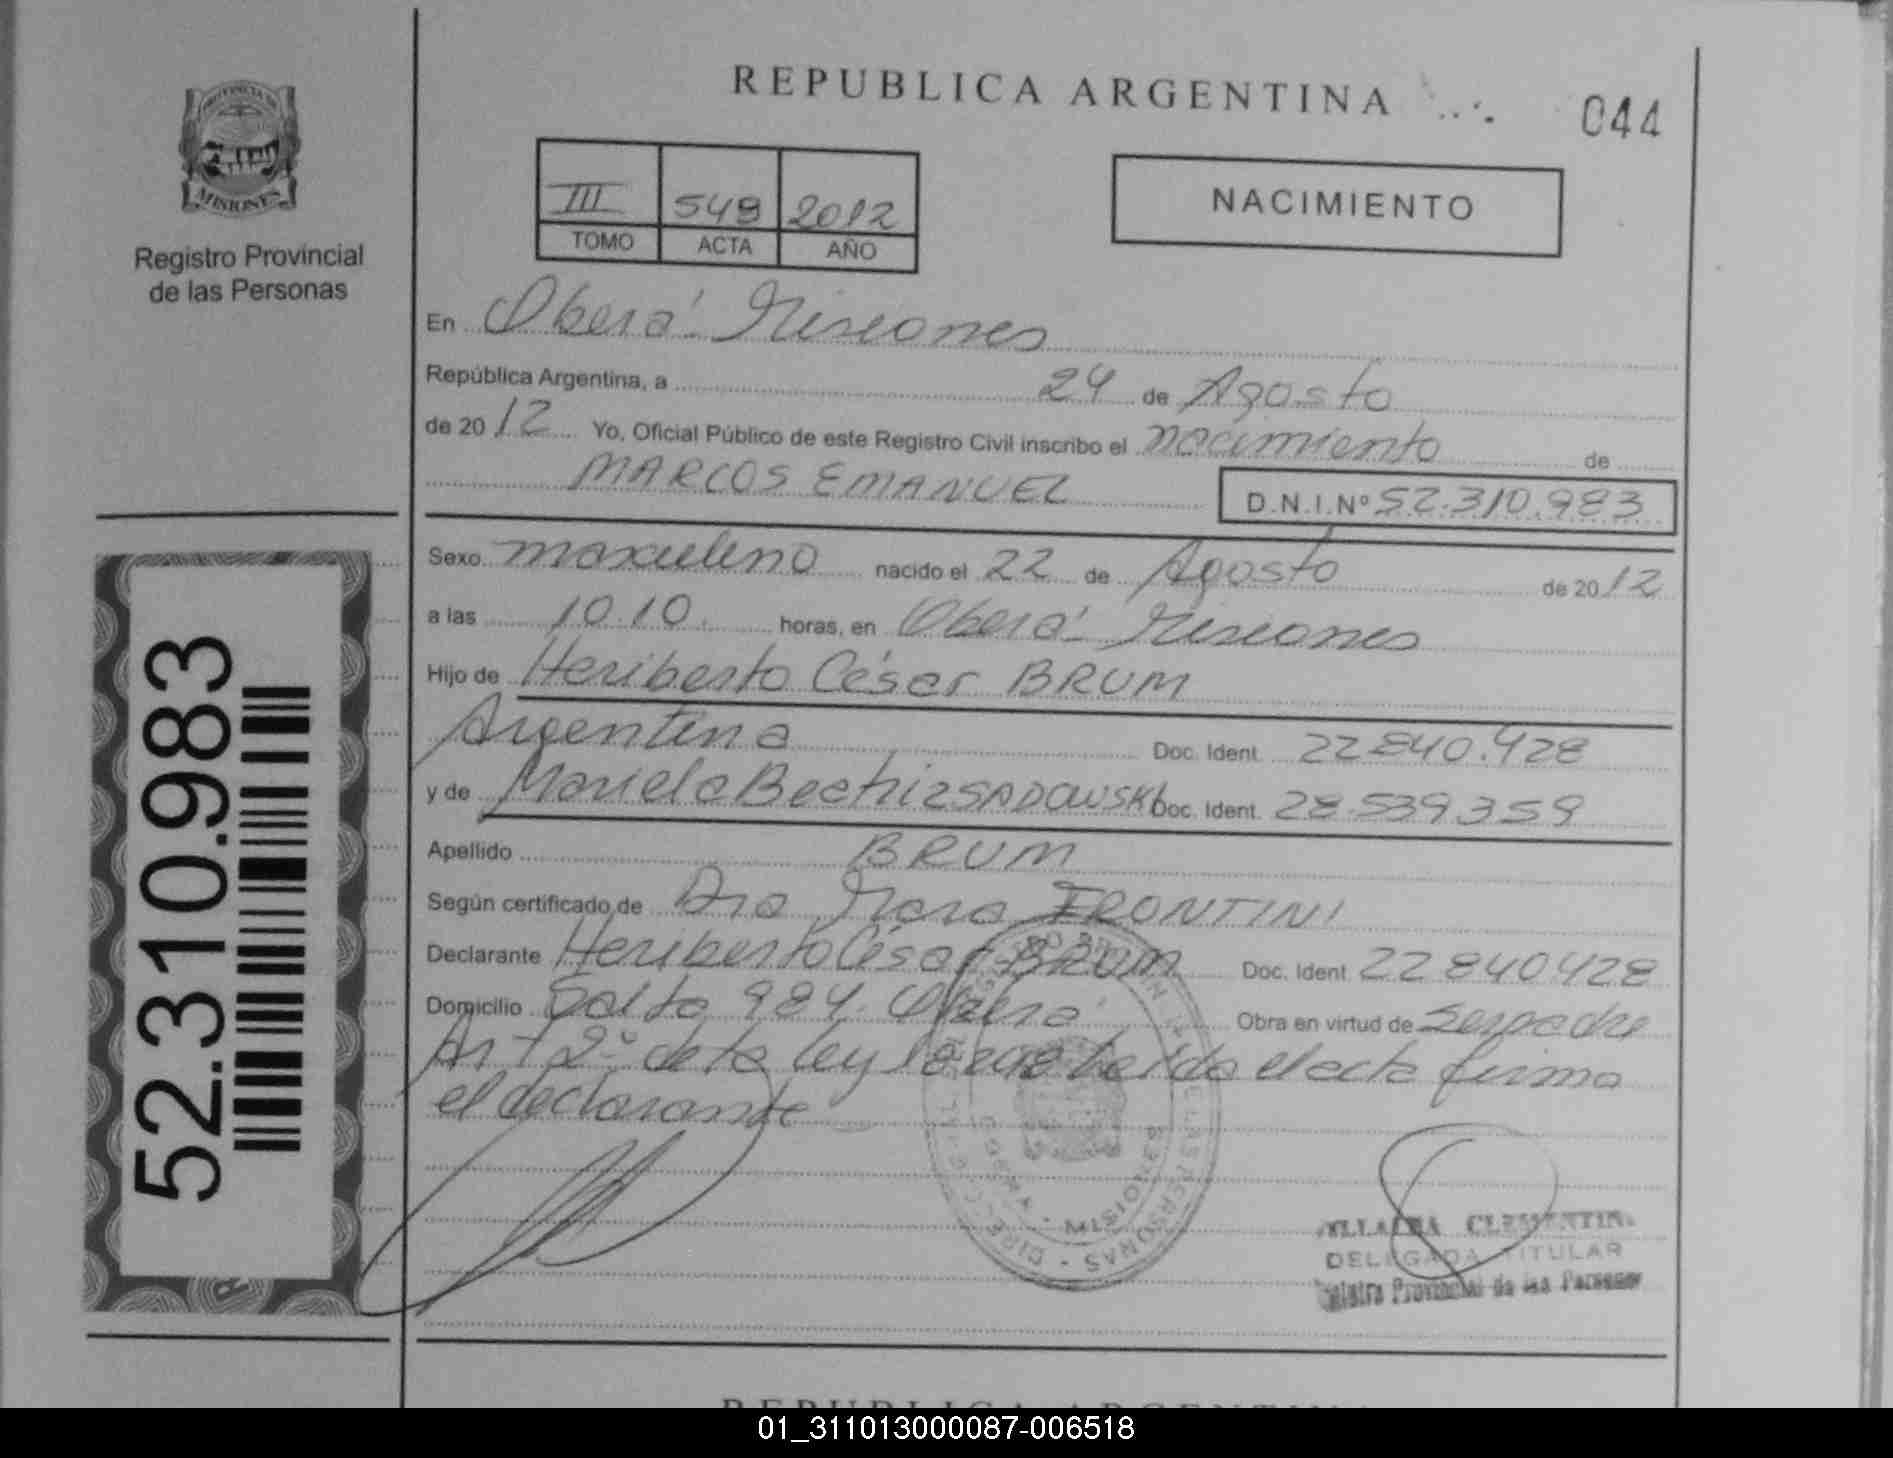 PROVINCIA DE
MISIONES
Registro Provincial
de las Personas
REPUBLICA ARGENTINA
044
III 549 2012
TOMO ACTA AÑO
NACIMIENTO
En Oberá Misiones
República Argentina, a 24 de Agosto
de 2012 Yo, Oficial Público de este Registro Civil inscribo el nacimiento de
MARCOS EMANUEL D.N.I.Nº 52.310.983
Sexo masculino nacido el 22 de Agosto de 2012
a las 10.10. horas, en Oberá Misiones
Hijo de Heriberto César BRUM
Argentina Doc. Ident. 22.840.428
y de Mariela Beatriz SADOWSKI Doc. Ident. 28.539.359
Apellido BRUM
Según certificado de Dra Mara FRONTINI
Declarante Heriberto César BRUM Doc. Ident. 22840428
Domicilio Salta 984. Oberá Obra en virtud de Ser padre
Art 2º de la ley leida el acta firma
el declarante
52.310.983
MISIONES
CLEMENTINA
DELEGADA TITULAR
Registro Provincial de las Personas
REPUBLICA ARGENTINA
01_311013000087-006518